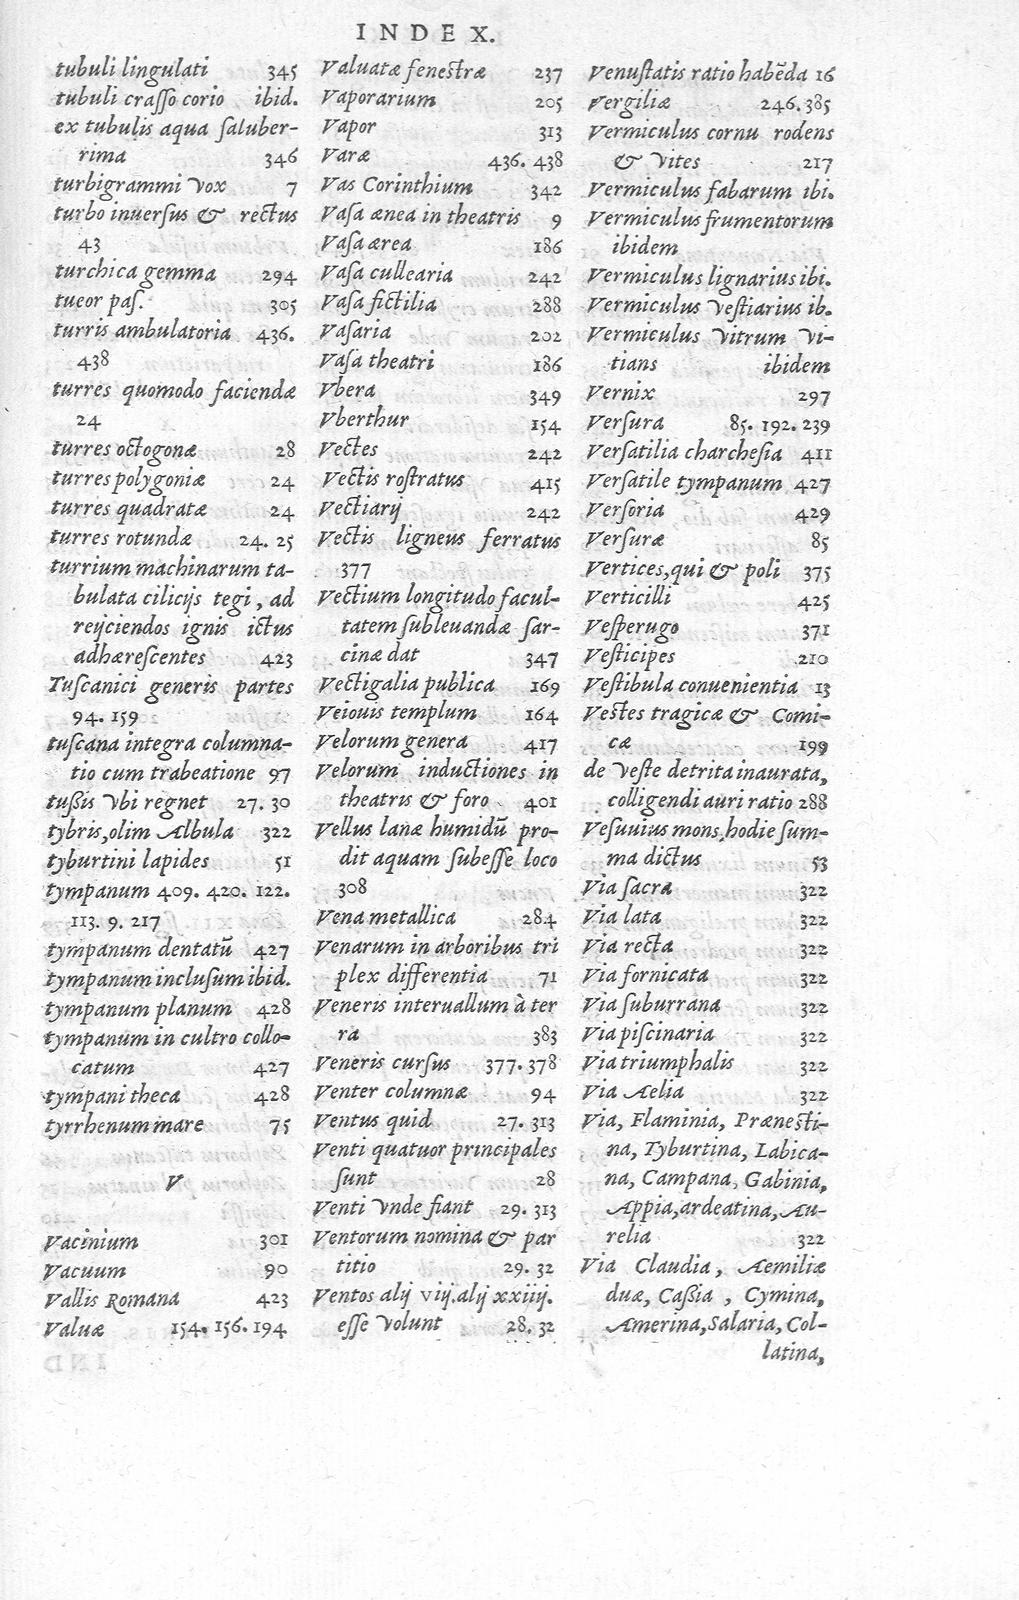 INDEX.
tubuli lingulati 345
tubuli crasso corio ibid.
ex tubulis aqua saluber-
rima 346
turbigrammi vox 7
turbo inuersus & rectus
43
turchica gemma 294
tueor pas. 305
turris ambulatoria 436.
438
turres quomodo faciendæ
24
turres octogonæ 28
turres polygoniæ 24
turres quadratæ 24
turres rotundæ 24. 25
turrium machinarum ta-
bulata cilicijs tegi, ad
reijciendos ignis ictus
adhærescentes 423
Tuscanici generis partes
94. 159
tuscana integra columna-
tio cum trabeatione 97
tußis vbi regnet 27. 30
tybris, olim Albula 322
tyburtini lapides 51
tympanum 409. 420. 122.
113. 9. 217
tympanum dentatũ 427
tympanum inclusum ibid.
tympanum planum 428
tympanum in cultro collo-
catum 427
tympani theca 428
tyrrhenum mare 75
V
Vacinium 301
Vacuum 90
Vallis Romana 423
Valuæ 154. 156. 194
Valuatæ fenestræ 237
Vaporarium 205
Vapor 313
Varæ 436. 438
Vas Corinthium 342
Vasa ænea in theatris 9
Vasa ærea 186
Vasa cullearia 242
Vasa fictilia 288
Vasaria 202
Vasa theatri 186
Vbera 349
Vberthur 154
Vectes 242
Vectis rostratus 415
Vectiarij 242
Vectis ligneus ferratus
377
Vectium longitudo facul-
tatem subleuandæ sar-
cinæ dat 347
Vectigalia publica 169
Veiouis templum 164
Velorum genera 417
Velorum inductiones in
theatris & foro 401
Vellus lanæ humidũ pro-
dit aquam subesse loco
308
Vena metallica 284
Venarum in arboribus tri
plex differentia 71
Veneris interuallum à ter
ra 383
Veneris cursus 377. 378
Venter columnæ 94
Ventus quid 27. 313
Venti quatuor principales
sunt 28
Venti vnde fiant 29. 313
Ventorum nomina & par
titio 29. 32
Ventos alij viij. alij xxiiij.
esse volunt 28. 32
Venustatis ratio habẽda 16
Vergiliæ 246. 385
Vermiculus cornu rodens
& vites 217
Vermiculus fabarum ibi.
Vermiculus frumentorum
ibidem
Vermiculus lignarius ibi.
Vermiculus vestiarius ib.
Vermiculus vitrum vi-
tians ibidem
Vernix 297
Versura 85. 192. 239
Versatilia charchesia 411
Versatile tympanum 427
Versoria 429
Versuræ 85
Vertices, qui & poli 375
Verticilli 425
Vesperugo 371
Vesticipes 210
Vestibula conuenientia 13
Vestes tragicæ & Comi-
cæ 199
de veste detrita inaurata,
colligendi auri ratio 288
Vesuuius mons, hodie sum-
ma dictus 53
Via sacra 322
Via lata 322
Via recta 322
Via fornicata 322
Via suburrana 322
Via piscinaria 322
Via triumphalis 322
Via Aelia 322
Via, Flaminia, Prænesti-
na, Tyburtina, Labica-
na, Campana, Gabinia,
Appia, ardeatina, Au-
relia 322
Via Claudia, Aemiliæ
duæ, Caßia, Cymina,
Amerina, Salaria, Col-
latina,